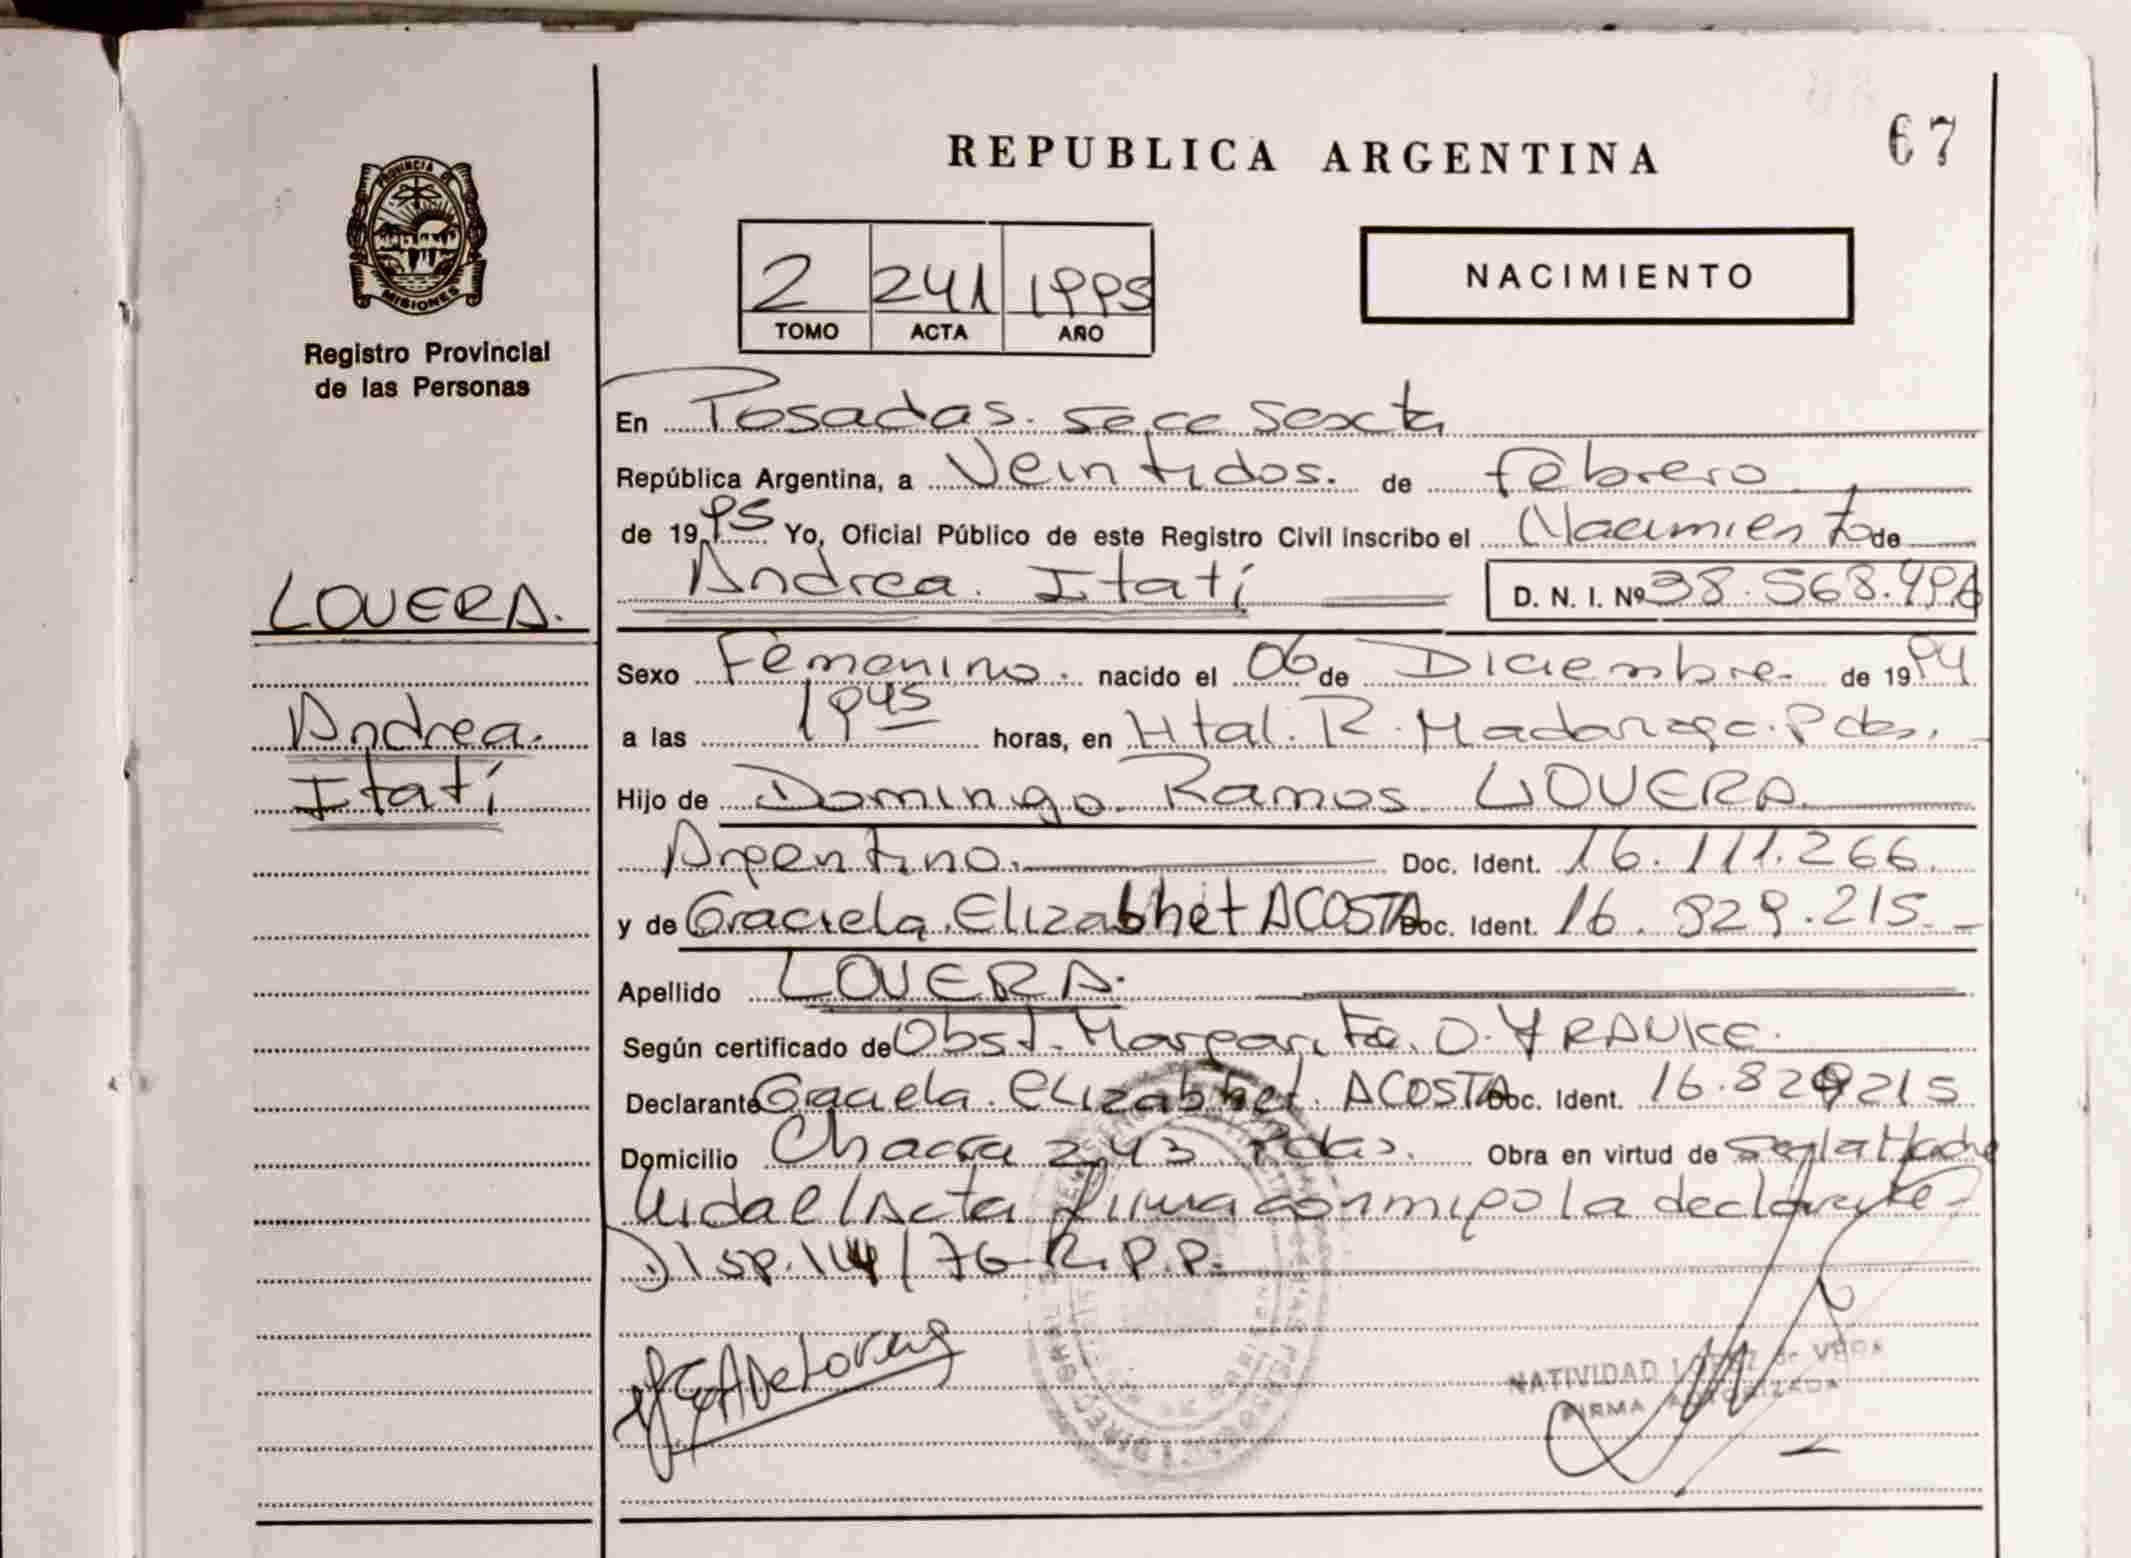 REPUBLICA ARGENTINA
67
PROVINCIA DE
MISIONES
Registro Provincial
de las Personas
2 241 1995
TOMO ACTA AÑO
NACIMIENTO
En Posadas. secc Sexta
República Argentina, a Veintidos. de febrero
de 1995 Yo, Oficial Público de este Registro Civil inscribo el Nacimiento de
LOVERA.
Andrea. Itatí D. N. I. Nº 38.568.496
Sexo Femenino. nacido el 06 de Diciembre. de 1994
Andrea.
a las 1945 horas, en Htal. R. Madariaga. Pdas.
Itatí
Hijo de Domingo Ramos LOVERA
Argentino. Doc. Ident. 16.111.266.
y de Graciela Elizabhet ACOSTA Doc. Ident. 16.829.215
Apellido LOVERA.
Según certificado de Obst. Margarita. O.
Declarante Graciela. Elizabhet. ACOSTA Doc. Ident. 16.829215
Domicilio Chacra 243 Pdas. Obra en virtud de ser la Madre
Leida el Acta firma conmigo la declarante
Disp. 144/76 R.P.P.
NATIVIDAD LOPEZ de VERA
FIRMA AUTORIZADA